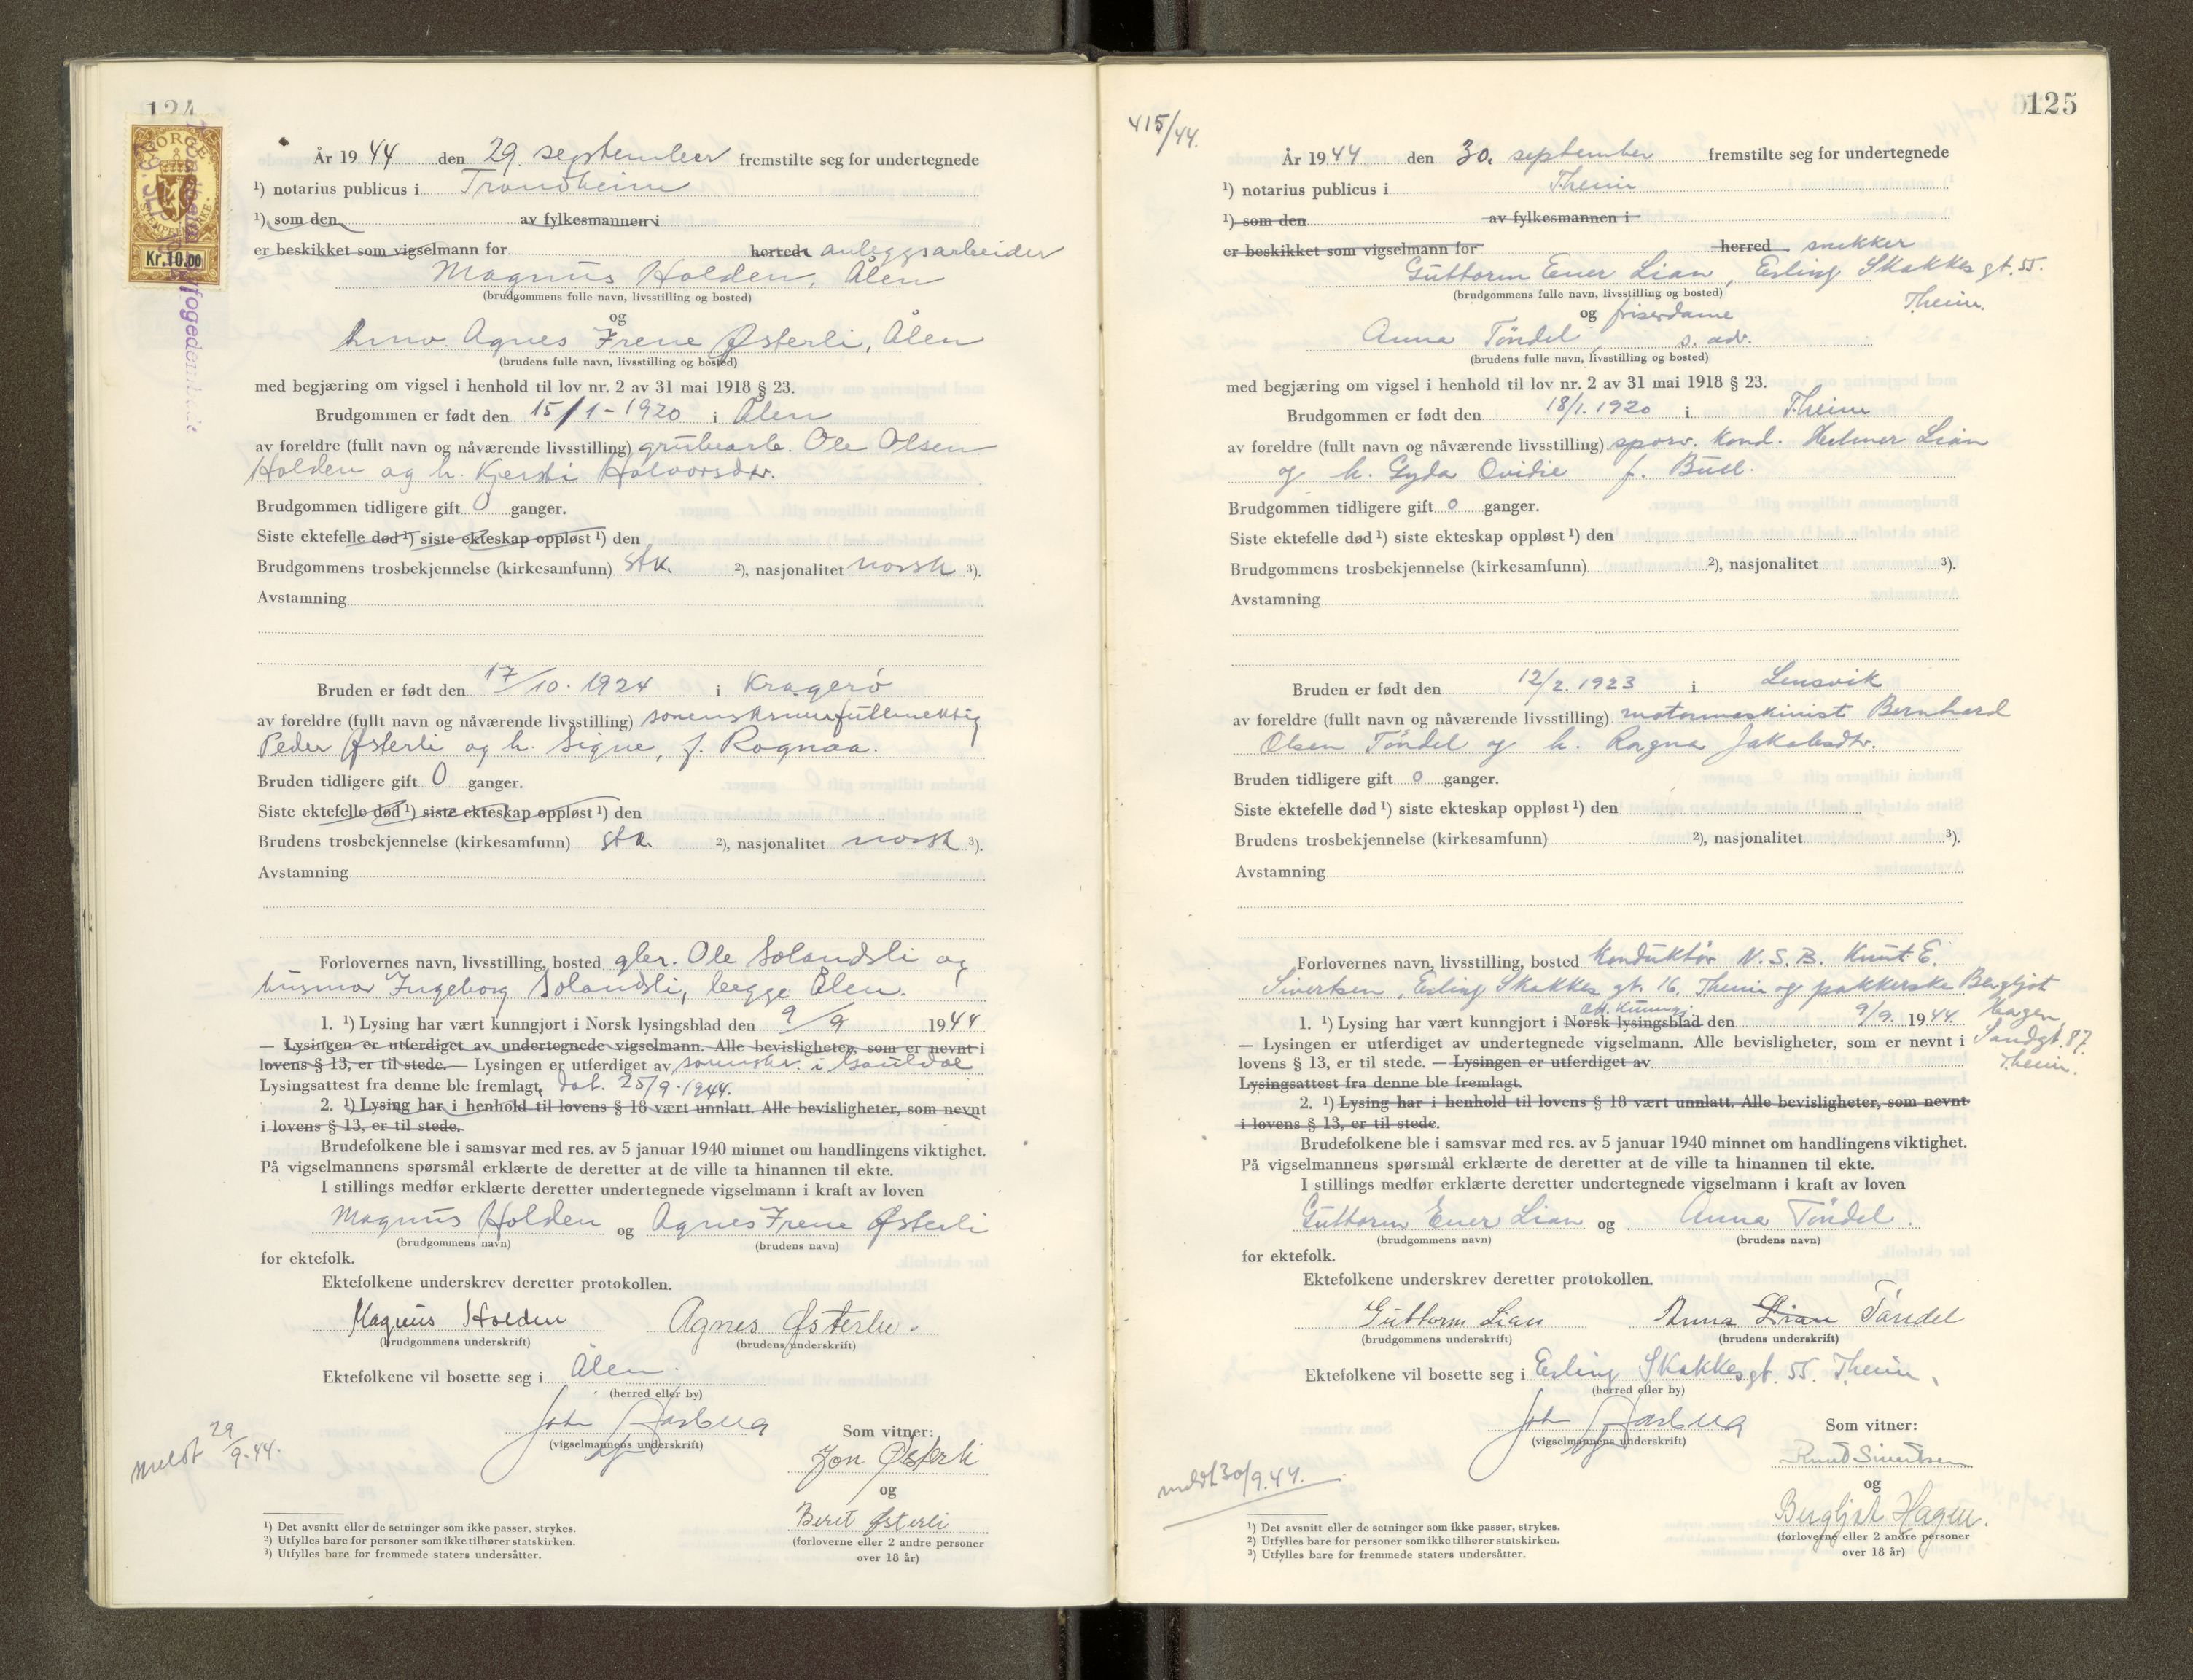 124
NORGE
STEMPELMERKE
Kr.10.00
År 1944 den 29. september fremstilte seg for undertegnede
¹) notarius publicus i Trondheim
¹) som den av fylkesmannen i
er beskikket som vigselmann for herred. anleggsarbeider
Magnus Holden, Ålen
(brudgommens fulle navn, livsstilling og bosted)
og
Agnes Irene Østerli, Ålen
(brudens fulle navn, livsstilling og bosted)
med begjæring om vigsel i henhold til lov nr. 2 av 31 mai 1918 § 23.
Brudgommen er født den 15/1-1920 i Ålen
av foreldre (fullt navn og nåværende livsstilling) grubearb. Ole Olsen
Holden og h. Kjersti Halvorsdtr.
Brudgommen tidligere gift 0 ganger.
Siste ektefelle død ¹) siste ekteskap oppløst ¹) den
Brudgommens trosbekjennelse (kirkesamfunn) stk. ²), nasjonalitet norsk ³).
Avstamning
Bruden er født den 17/10. 1924 i Kragerø
av foreldre (fullt navn og nåværende livsstilling) sorenskriverfullmektig
Peder Østerli og h. Signe, f. Rognaa.
Bruden tidligere gift 0 ganger.
Siste ektefelle død ¹) siste ekteskap oppløst ¹) den
Brudens trosbekjennelse (kirkesamfunn) stk. ²), nasjonalitet norsk ³).
Avstamning
Forlovernes navn, livsstilling, bosted gbr. Ole Solandsli og
husmor Ingeborg Solandsli, begge Ålen.
1. ¹) Lysing har vært kunngjort i Norsk lysingsblad den 9/9 1944
— Lysingen er utferdiget av undertegnede vigselmann. Alle bevisligheter, som er nevnt i
lovens § 13, er til stede. — Lysingen er utferdiget av sorenskr. i Gauldal
Lysingsattest fra denne ble fremlagt, dat. 25/9-1944.
2. ¹) Lysing har i henhold til lovens § 18 vært unnlatt. Alle bevisligheter, som nevnt
i lovens § 13, er til stede.
Brudefolkene ble i samsvar med res. av 5 januar 1940 minnet om handlingens viktighet.
På vigselmannens spørsmål erklærte de deretter at de ville ta hinannen til ekte.
I stillings medfør erklærte deretter undertegnede vigselmann i kraft av loven
Magnus Holden og Agnes Irene Østerli
(brudgommens navn) (brudens navn)
for ektefolk.
Ektefolkene underskrev deretter protokollen.
Magnus Holden Agnes Østerli.
(brudgommens underskrift) (brudens underskrift)
Ektefolkene vil bosette seg i Ålen.
(herred eller by)
(vigselmannens underskrift)
Som vitner:
Jon Østerli
og
Berit Østerli
(forloverne eller 2 andre personer
over 18 år)
meldt 29/9-44.
¹) Det avsnitt eller de setninger som ikke passer, strykes.
²) Utfylles bare for personer som ikke tilhører statskirken.
³) Utfylles bare for fremmede staters undersåtter.
125
415/44.
År 1944 den 30. september fremstilte seg for undertegnede
¹) notarius publicus i Theim
¹) som den av fylkesmannen i
er beskikket som vigselmann for herred. snekker
Guttorm Ener Lian, Erling Skakkes gt. 55.
(brudgommens fulle navn, livsstilling og bosted) Theim.
og friserdame
Anna Tøndel, s. adr.
(brudens fulle navn, livsstilling og bosted)
med begjæring om vigsel i henhold til lov nr. 2 av 31 mai 1918 § 23.
Brudgommen er født den 18/1. 1920 i Theim
av foreldre (fullt navn og nåværende livsstilling) sporv. kond. Helmer Lian
og h. Gyda Ovidie f. Buel.
Brudgommen tidligere gift 0 ganger.
Siste ektefelle død ¹) siste ekteskap oppløst ¹) den
Brudgommens trosbekjennelse (kirkesamfunn) ²), nasjonalitet ³).
Avstamning
Bruden er født den 12/2. 1923 i Lensvik
av foreldre (fullt navn og nåværende livsstilling) motormaskinist Bernhard
Olsen Tøndel og h. Ragna Jakobsdtr.
Bruden tidligere gift 0 ganger.
Siste ektefelle død ¹) siste ekteskap oppløst ¹) den
Brudens trosbekjennelse (kirkesamfunn) ²), nasjonalitet ³).
Avstamning
Forlovernes navn, livsstilling, bosted Konduktør N.S.B. Knut E.
Sivertsen, Erling Skakkes gt. 16. Theim og pakkerske Bergljot
Hagen,
Sandgt. 87.
Theim.
1. ¹) Lysing har vært kunngjort i Norsk lysingsblad den 9/9. 1944.
— Lysingen er utferdiget av undertegnede vigselmann. Alle bevisligheter, som er nevnt i
lovens § 13, er til stede. — Lysingen er utferdiget av
Lysingsattest fra denne ble fremlagt.
2. ¹) Lysing har i henhold til lovens § 18 vært unnlatt. Alle bevisligheter, som nevnt
i lovens § 13, er til stede.
Brudefolkene ble i samsvar med res. av 5 januar 1940 minnet om handlingens viktighet.
På vigselmannens spørsmål erklærte de deretter at de ville ta hinannen til ekte.
I stillings medfør erklærte deretter undertegnede vigselmann i kraft av loven
Guttorm Ener Lian og Anna Tøndel.
(brudgommens navn) (brudens navn)
for ektefolk.
Ektefolkene underskrev deretter protokollen.
Guttorm Lian Anna Lian Tøndel
(brudgommens underskrift) (brudens underskrift)
Ektefolkene vil bosette seg i Erling Skakkesgt. 55. Theim.
(herred eller by)
(vigselmannens underskrift)
Som vitner:
Knut Sivertsen
og
Bergljot Hagen.
(forloverne eller 2 andre personer
over 18 år)
meldt 30/9.44.
¹) Det avsnitt eller de setninger som ikke passer, strykes.
²) Utfylles bare for personer som ikke tilhører statskirken.
³) Utfylles bare for fremmede staters undersåtter.